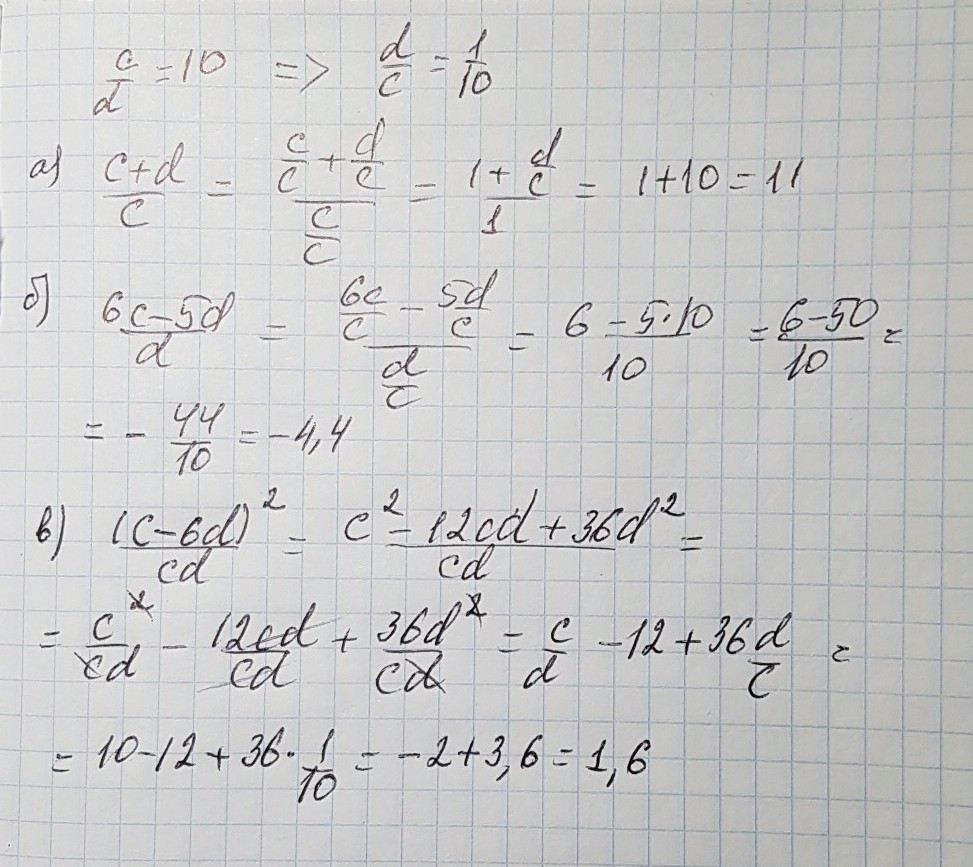 c/d = 10 => d/c = 1/10
а) (c+d)/c = (c/c + d/c)/(c/c) = (1 + d/c)/1 = 1+10 = 11
б) (6c-5d)/d = (6c/c - 5d/c)/(d/c) = (6-5·10)/10 = (6-50)/10 =
= - 44/10 = -4,4
в) (c-6d)²/cd = (c² - 12cd + 36d²)/cd =
= c²/cd - 12cd/cd + 36d²/cd = c/d - 12 + 36 d/c =
= 10-12+36·1/10 = -2+3,6 = 1,6